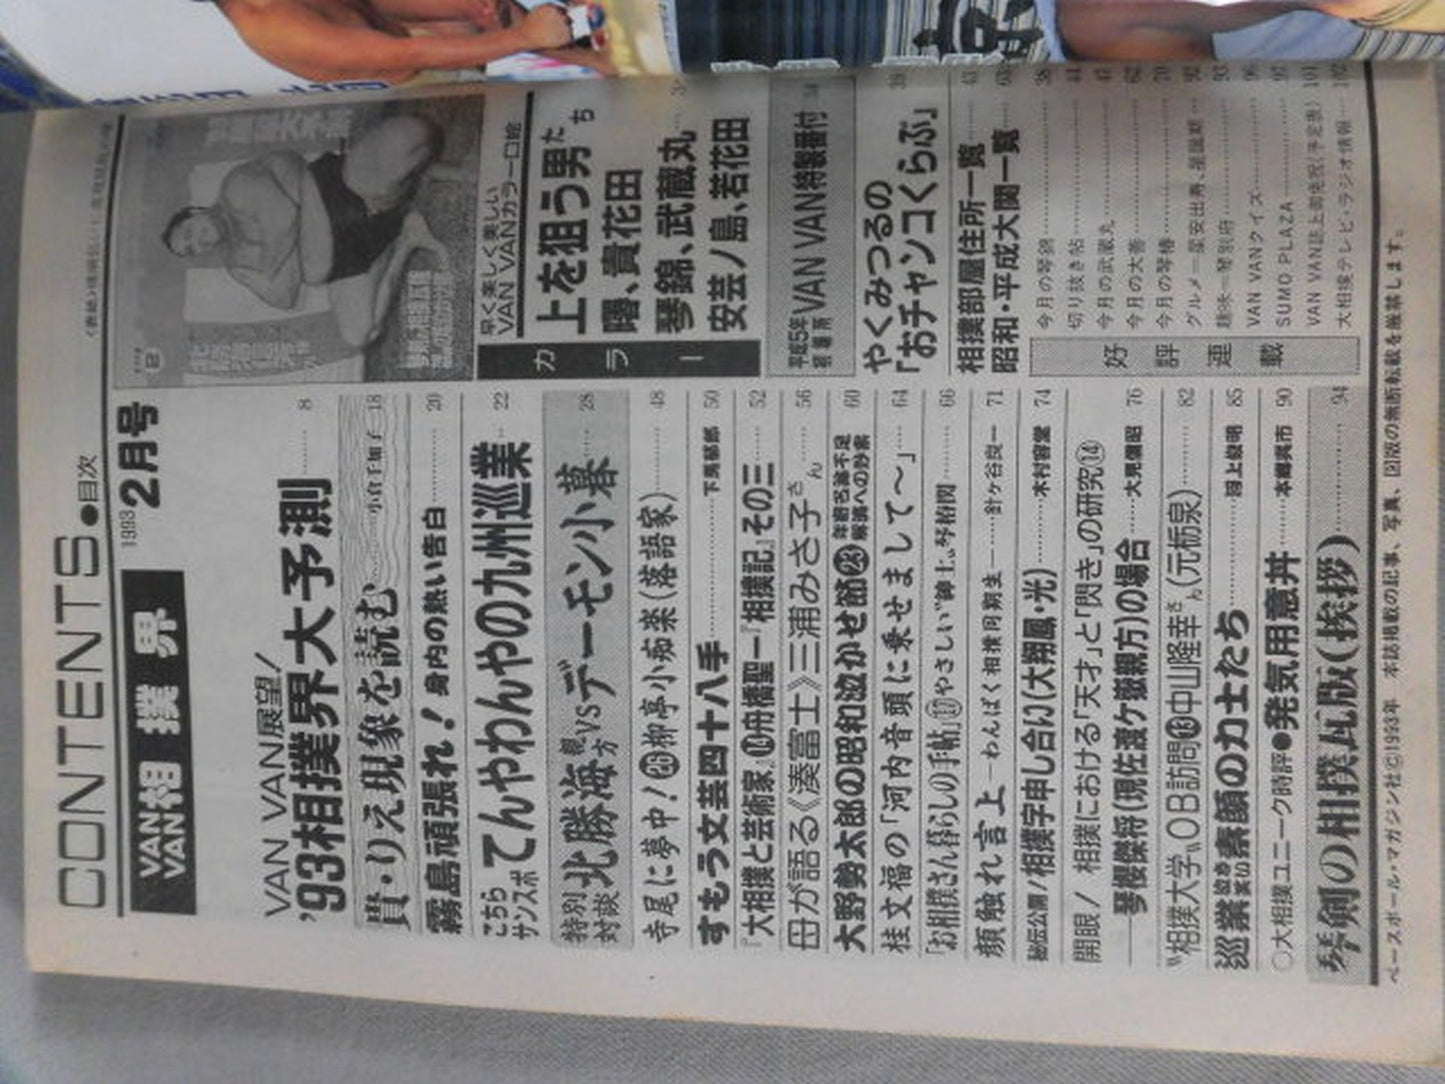 CONTENTS●目次
VAN VAN相撲界
1993 2月号
VAN VAN展望!
'93相撲界大予測 8
貴・りえ現象を読む 小倉千加子 18
霧島頑張れ!身内の熱い告白 20
こちらサンスポ てんやわんやの九州巡業 22
特別対談 北勝海親方VSデーモン小暮 28
寺尾に夢中!㉖柳亭小痴楽(落語家) 48
すもう文芸四十八手 50
『大相撲と芸術家』⑭舟橋聖一『相撲記』その三 52
母が語る《湊富士》三浦みさ子さん 56
大野勢太郎の昭和泣かせ節㉓年寄名跡不足解消への妙案 60
桂文福の「河内音頭に乗せまして〜」 64
「お相撲さん暮らしの手帖」⑰やさしい“紳士”琴椿関 66
顔触れ言上—わんぱく相撲同期生—針ケ谷良一 71
秘伝公開!相撲字申し合い(大翔鳳・光) 木村容堂 74
開眼!相撲における「天才」と「閃き」の研究⑭
—琴櫻傑将(現佐渡ケ嶽親方)の場合 大見信昭 76
“相撲大学”OB訪問⑬中山隆幸さん(元栃泉) 82
巡業密着素顔の力士たち 85
○大相撲ユニーク時評●発気用意丼 90
琴剣の相撲瓦版(挨拶) 94
カラー
早く楽しく美しい
VAN VANカラー口絵
上を狙う男たち
曙、貴花田
琴錦、武蔵丸
安芸ノ島、若花田
平成5年初場所 VAN VAN特製番付 34
やくみつるの
「おチャンコくらぶ」 39
相撲部屋住所一覧 43
昭和・平成大関一覧 63
好評連載
今月の琴錦 38
切り抜き帖 44
今月の武蔵丸 47
今月の大善 62
今月の琴椿 70
グルメ—安芸出寿、星誕期 92
趣味—琴別府 93
VAN VANクイズ 96
SUMO PLAZA 97
VAN VAN誌上御免祝(予定表) 101
大相撲テレビ・ラジオ情報 102
ベースボール・マガジン社©1993年 本誌掲載の記事、写真、図版の無断転載を厳禁します。